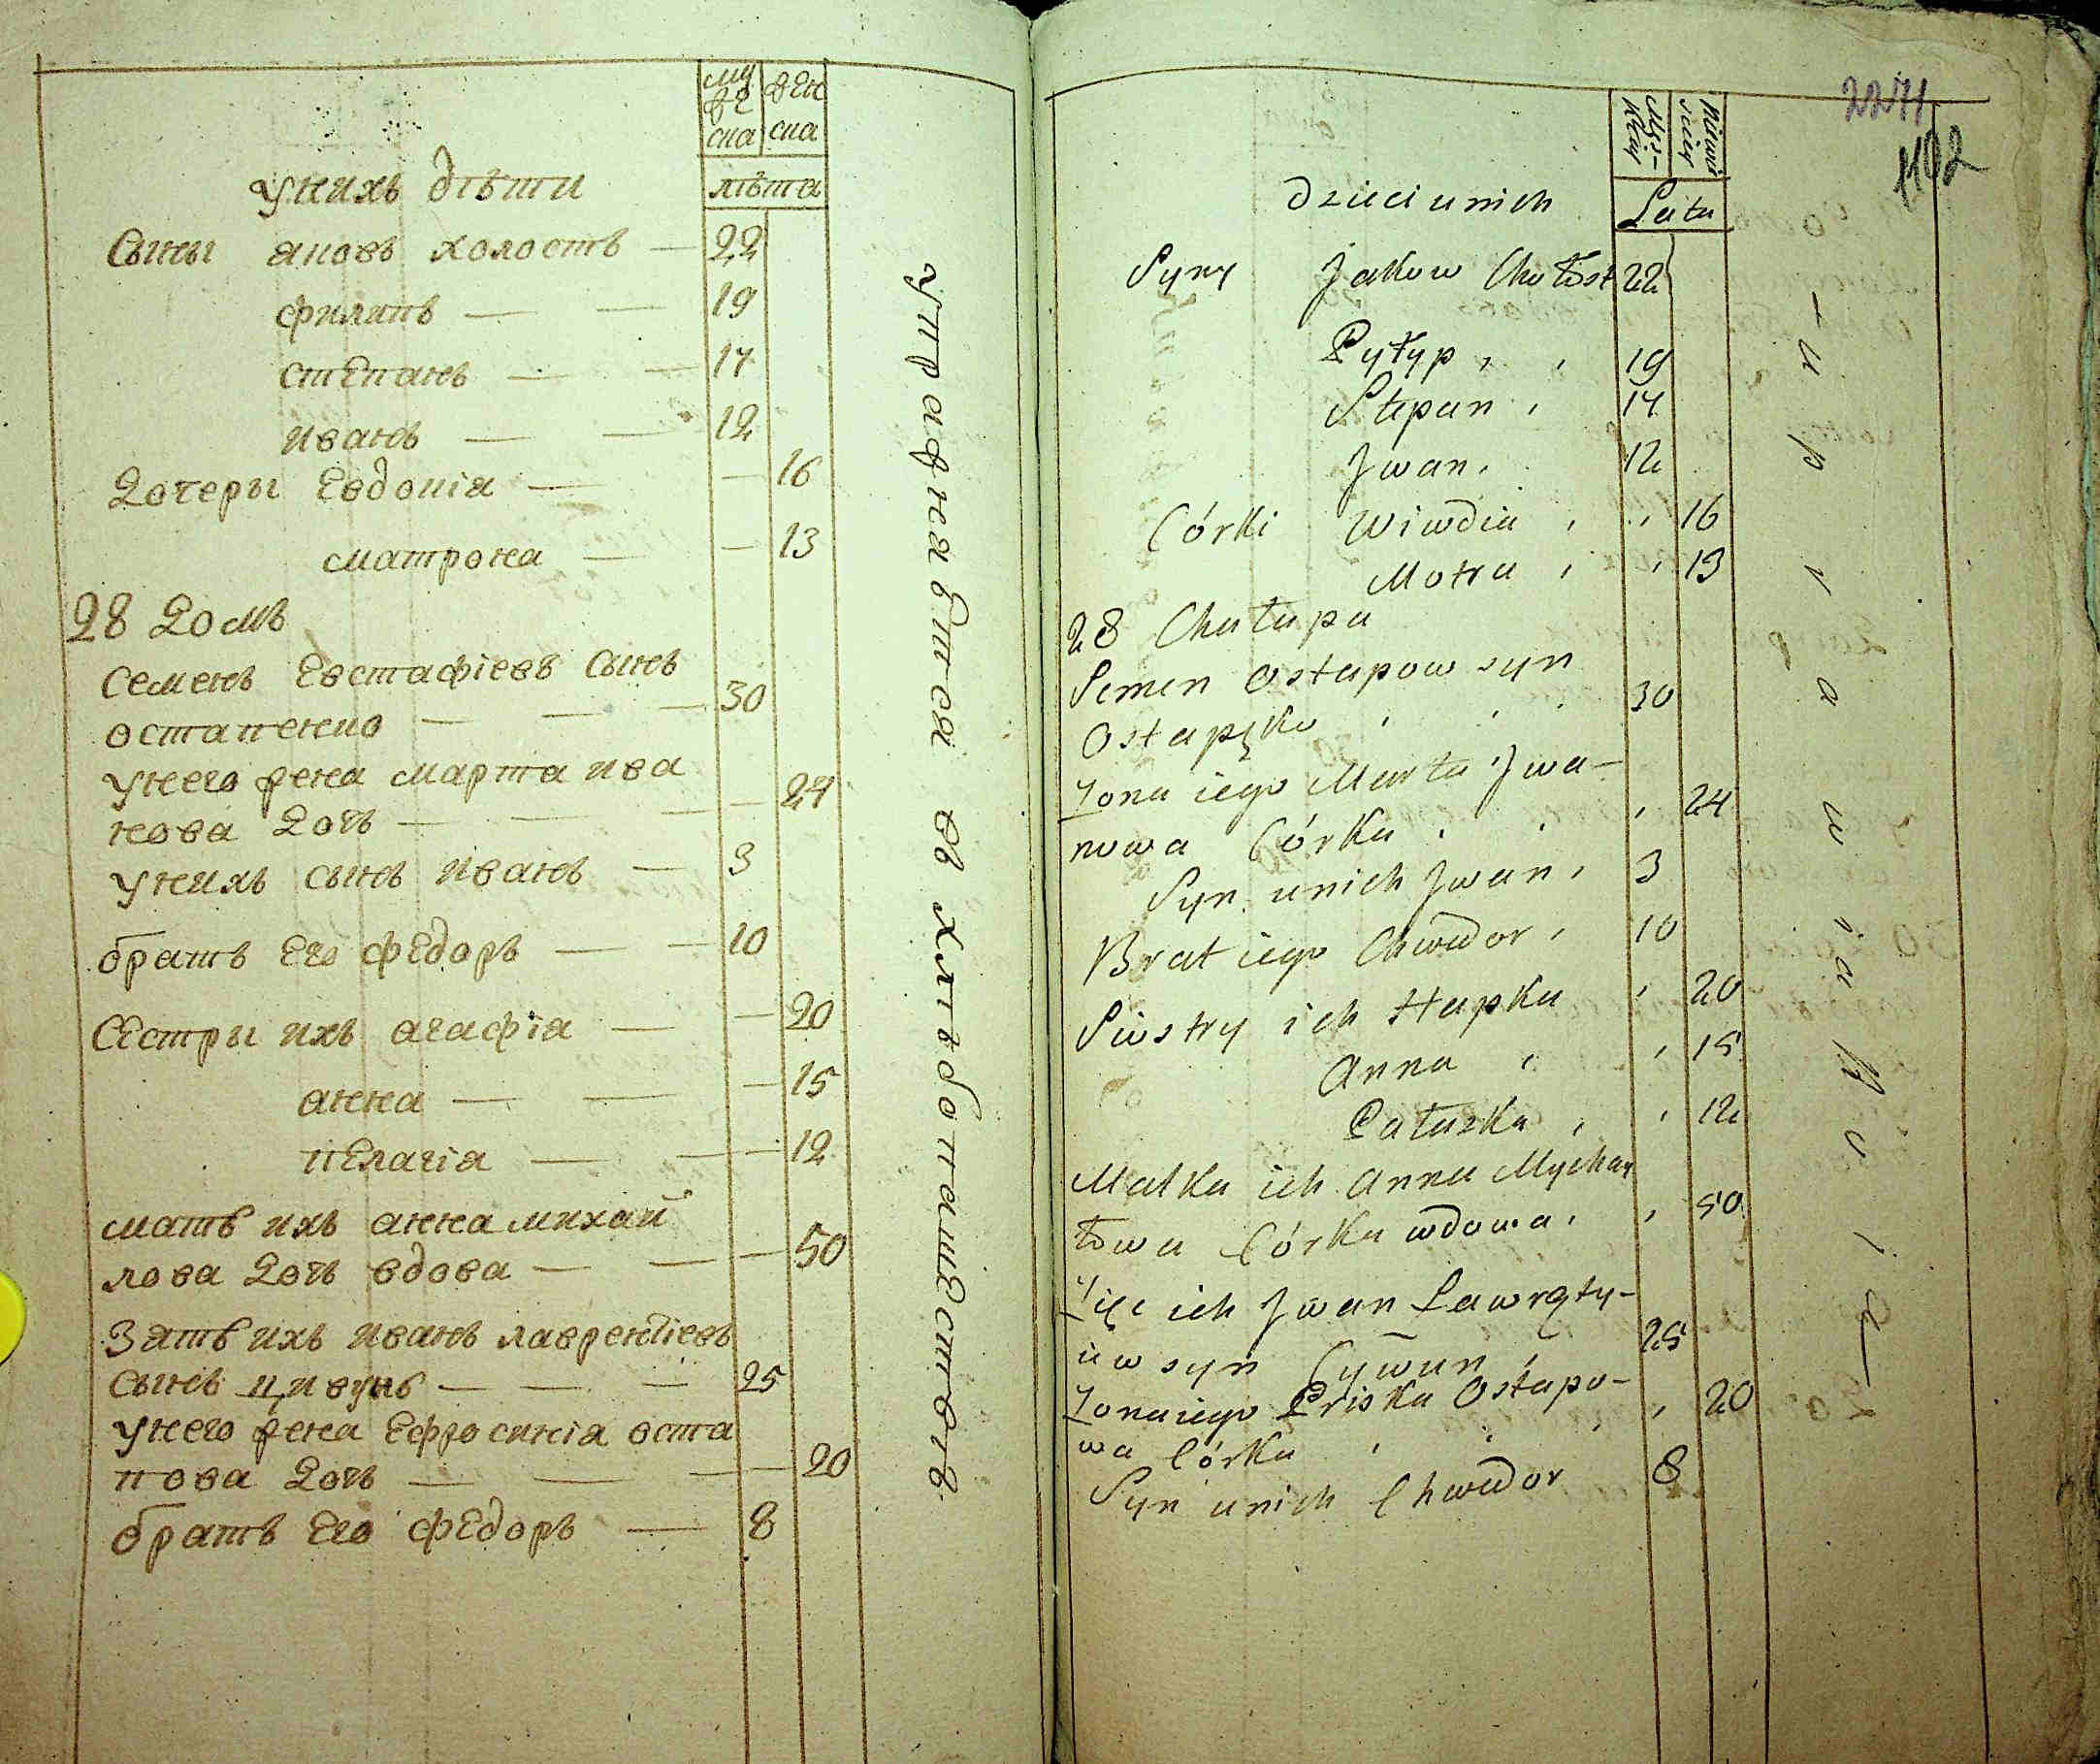 муже
ска
женска
лѣта
у нихъ дѣти
Сыны яковъ холостъ — 22
филипъ — — 19
степанъ — — 17
иванъ — — 12
Дочеры Евдокія — — 16
матрона — — 13
28 Домъ
Семенъ Евстафіевъ сынъ
остапенко — — — 30
у него жена марта ива
нова Дочь — — — — 24
у нихъ сынъ иванъ — 3
братъ Его фЕдоръ — — 10
СЕстры ихъ агафія — — 20
анна — — — 15
пЕлагія — — — 12
мать ихъ анна михай
лова Дочь вдова — — — 50
Зять ихъ иванъ лаврентіевъ
сынъ цивунъ — — — 25
у него жена Ефросинія оста
пова Дочь — — — — 20
братъ Его фЕдоръ — 8
упражняѣтся въ хлѣбопашествѣ
2271
1102
Męz-
kiey
Niewie
sciey
Lata
Dzieci unich
Syny Jakow Chołost 22
Pyłyp , , 19
Stepan , 17
Jwan , 12
Córki Wiwdia , , 16
Motra , , 13
28 Chałupa
Semen Ostapow syn
Ostapęko , , , 30
Żona iego Marta Jwa-
nowa Córka , , , 24
Syn unich Jwan , 3
Brat iego Chwedor , 10
Siostry ich Hapka , 20
Anna , , 15
Pałażka , , 12
Matka ich Anna Mychay
łowa Córka wdowa , , 50
Zięć ich Jwan Ławręty-
iew syn Cywun , 25
Żona iego Priska Ostapo- , 20
wa Córka , , ,
Syn unich Chwedor 8